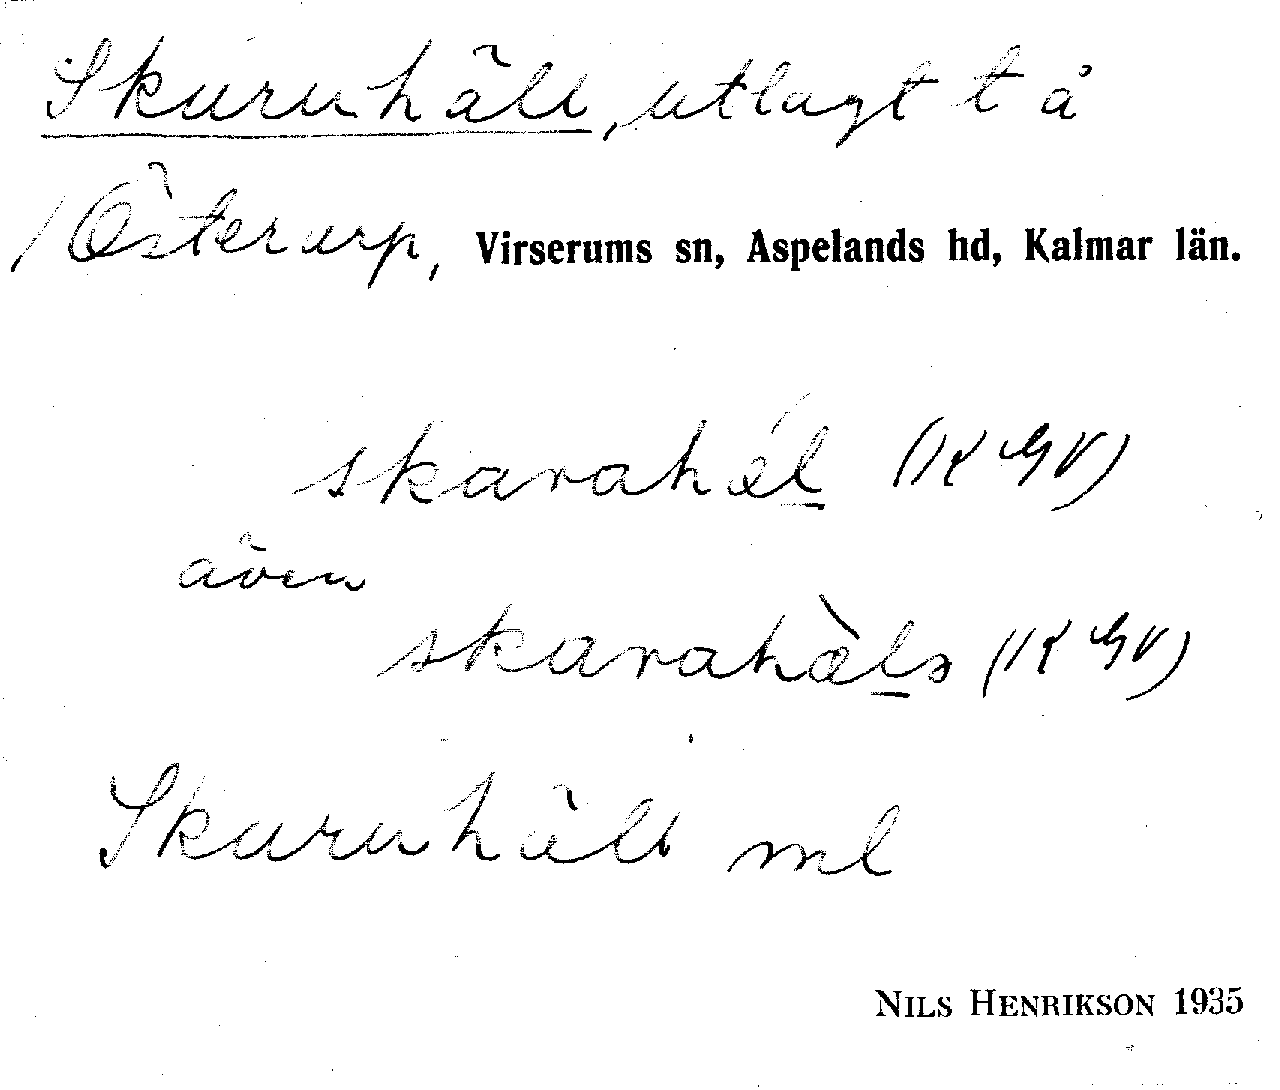 Skuruhäll, utlagt t å
/Österarp, Virserums sn, Aspelands hd, Kalmar län.
skarahǽl
även
skarahæ̀ls
Skuruhäll ml
NILS HENRIKSON 1935